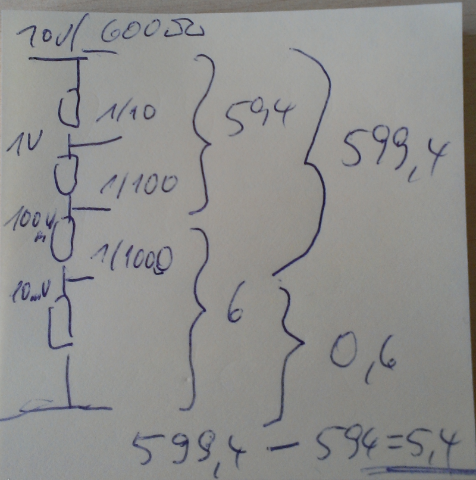 10V/ 600Ω
1/10
594
1V
599,4
1/100
100mV
1/1000
10mV
6
0,6
599,4 - 594=5,4